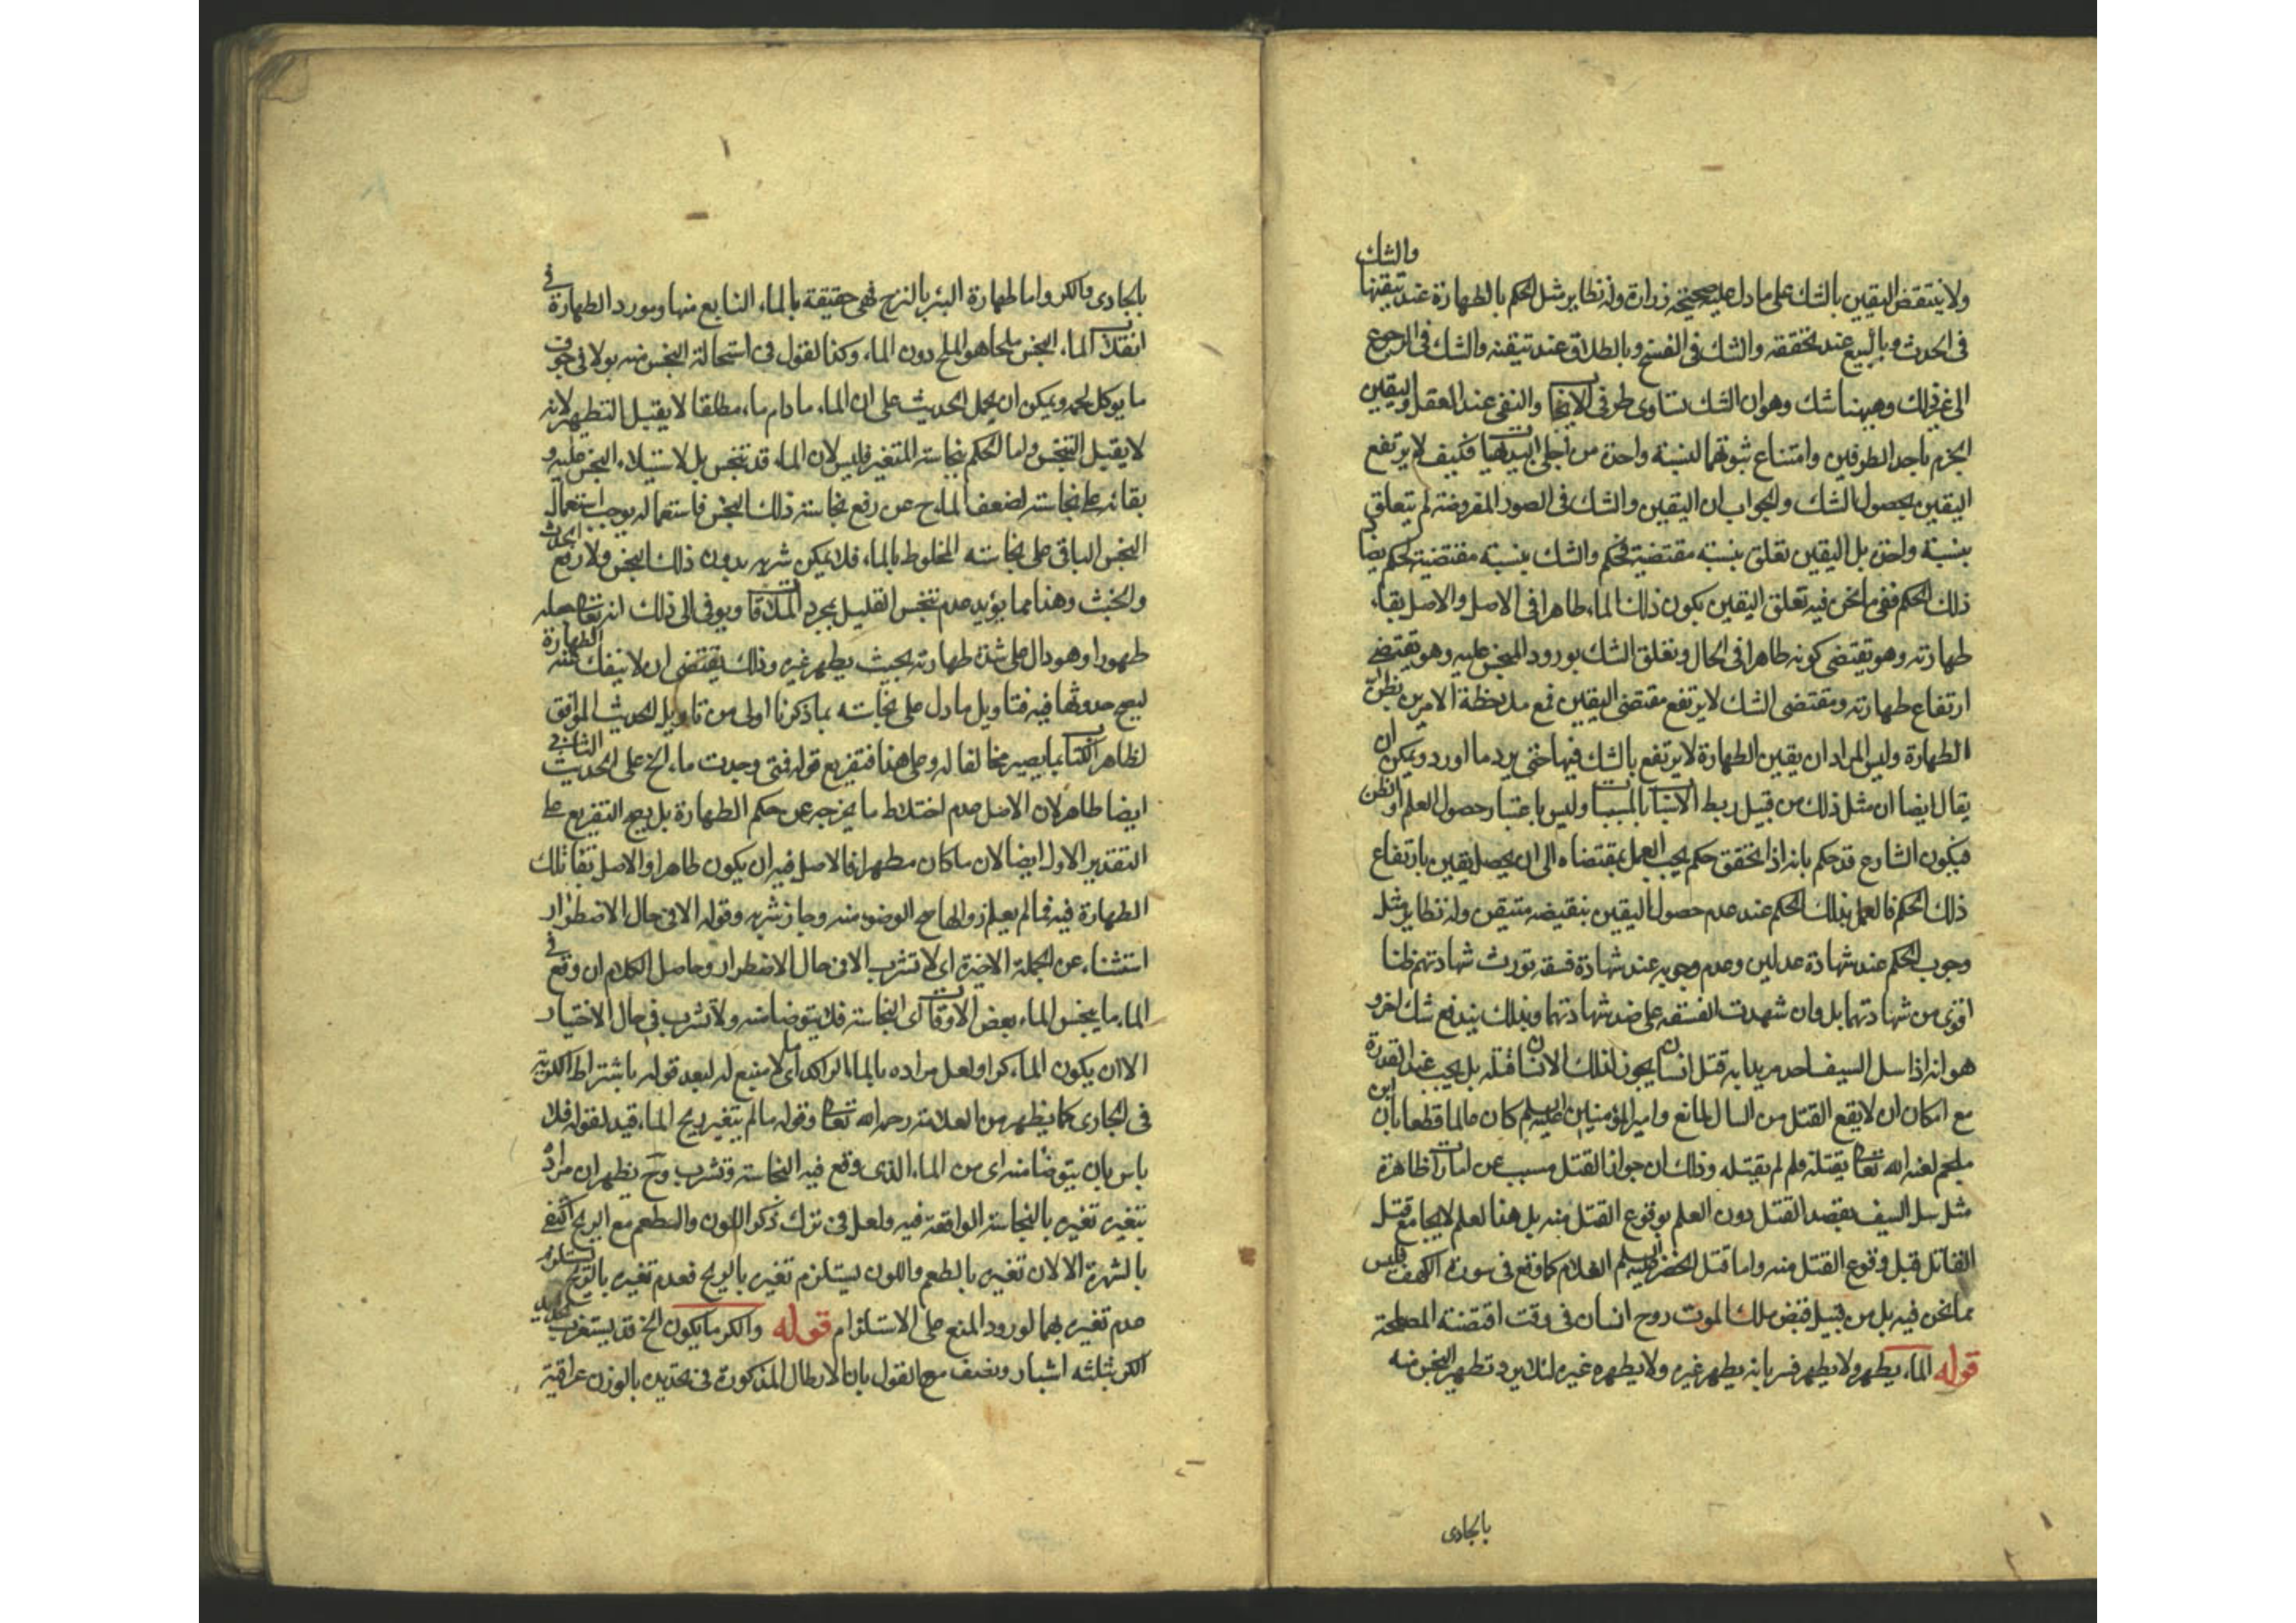 ولا ينتقض اليقين بالشك على ما دل عليه صحيحة زرارة وله نظاير مثل الحكم بالطهارة عند تيقنها والشك
في الحدث وبالبيع عند تحققه والشك في الفسخ وبالطلاق عند تيقنه والشك في الرجوع
الى غير ذلك وهيهنا شك وهو ان الشك تساوى طرفي الايجاب والنفي عند العقل واليقين
الجزم باحد الطرفين وامتناع ثبوتهما لنسبة واحدة من اجلى البديهيات فكيف لا يرتفع
اليقين بحصول الشك والجواب ان اليقين والشك في الصور المفروضة لم يتعلق
بنسبة واحدة بل اليقين تعلق بنسبة مقتضية لحكم والشك بنسبة مقتضية لحكم يضاد
ذلك الحكم ففي ما نحن فيه تعلق اليقين بكون ذلك الماء طاهرا في الاصل والاصل بقاء
طهارته وهو يقتضي كونه طاهرا في الحال وتعلق الشك بورود المنجس عليه وهو يقتضي
ارتفاع طهارته ومقتضى الشك لا يرفع مقتضى اليقين فمع ملاحظة الامرين يظن
الطهارة وليس المراد ان يقين الطهارة لا يرتفع بالشك فيها حتى يرد ما اورد ويمكن ان
يقال ايضا ان مثل ذلك من قبيل ربط الاسباب بالمسببات وليس باعتبار حصول العلم او الظن
فيكون الشارع قد حكم بانه اذا تحقق حكم يجب العمل بمقتضاه الى ان يحصل يقين بارتفاع
ذلك الحكم فالعمل بذلك الحكم عند عدم حصول اليقين بنقيضه متيقن وله نظاير مثل
وجوب الحكم عند شهادة عدلين وعدم وجوبه عند شهادة فسقة تورث شهادتهم ظنا
اقوى من شهادتهما بل وان شهدت الفسقة على ضد شهادتهما وبذلك يندفع شك اخر و
هو انه اذا سل السيف احد مريدا به قتل انسان يجوز لذلك الانسان قتله بل يجب عند القدرة
مع امكان ان لا يقع القتل من السال لمانع وامير المؤمنين عليه السلم كان عالما قطعا بان ابن
ملجم لعنه الله تعالى يقتله ولم لم يقتله وذلك ان جواز القتل مسبب عن امارات ظاهرة
مثل سل السيف بقصد القتل دون العلم بوقوع القتل منه بل هذا لعلم لا يجامع قتل
القاتل قبل وقوع القتل منه واما قتل الخضر عليه السلم الغلام كما وقع في سورة الكهف فليس
مما نحن فيه بل من قبيل قبض ملك الموت روح انسان في وقت اقتضته المصلحة
قوله الماء يطهر ولا يطهر فسر بانه يطهر غيره ولا يطهره غيره لئلا يرد تطهير النجس منه
بالجارى
بالجارى والكر واما طهارة البئر بالنزح فهي حقيقة بالماء النابع منها ومورد الطهارة في
انقلاب الماء النجس ملحا هو الملح دون الماء وكذا نقول في استحالة النجس منه بولا في جوف
ما يوكل لحمه ويمكن ان يحمل الحديث على ان الماء ما دام ماء مطلقا لا يقبل التطهير لانه
لا يقبل التنجس واما الحكم بنجاسة المتغير فليس لان الماء قد تنجس بل لاستيلاء النجس عليه و
بقائه على نجاسته لضعف الماء ح عن رفع نجاسة ذلك النجس فاستعماله يوجب استعمال
النجس الباقي على نجاسته المخلوط بالماء فلا يمكن شربه بدون ذلك النجس ولا رفع الحدث
والخبث وهذا مما يؤيد عدم تنجس القليل بمجرد الملاقات ويومى الى ذلك انه تعالى جعله
طهورا وهو دال على شدة طهارته بحيث يطهر غيره وذلك يقتضي ان لا ينفك عنه الطهارة
ليصح حدوثها فيه فتاويل ما دل على نجاسته بما ذكرنا اولى من تاويل الحديث الموافق
لظاهر الكتاب بما يصير مخالفا له وعلى هذا فتفريع قوله فمتى وجدت ماء الخ على الحديث الثاني
ايضا ظاهر لان الاصل عدم اختلاط ما يخرجه عن حكم الطهارة بل يصح التفريع على
التقدير الاول ايضا لان ما كان مطهرا فالاصل فيه ان يكون طاهرا والاصل بقاء تلك
الطهارة فيه فما لم يعلم زوالها صح الوضوء منه وجاز شربه وقوله الا في حال الاضطرار
استثناء عن الجملة الاخيرة اى لا تشرب الا في حال الاضطرار وحاصل الكلام ان وقع في
الماء ما ينجس الماء بعض الاوقات اى النجاسة فلا يتوضا منه ولا تشرب في حال الاختيار
الا ان يكون الماء كرا ولعل مراده بالماء الراكد اى ما لا منبع له لبعد قوله باشتراط الكرية
في الجارى كما يظهر من العلامة رحمه الله تعالى وقوله ما لم يتغير ريح الماء قيد لقوله فلا
باس بان يتوضا منه اى من الماء الذى وقع فيه النجاسة وتشرب وح يظهر ان مراده
بتغيره تغيره بالنجاسة الواقعة فيه ولعل في ترك ذكر اللون والطعم مع الريح اكتفى
بالشهرة الا لان تغيره بالطعم واللون يستلزم تغيره بالريح فعدم تغيره بالريح يستلزم
عدم تغيره بهما لورود المنع على الاستلزام قوله والكر ما يكون الخ قد يستغرب تحديد
الكر بثلثه اشبار ونصف مع القول بان الارطال المذكورة في تحديده بالوزن عراقية